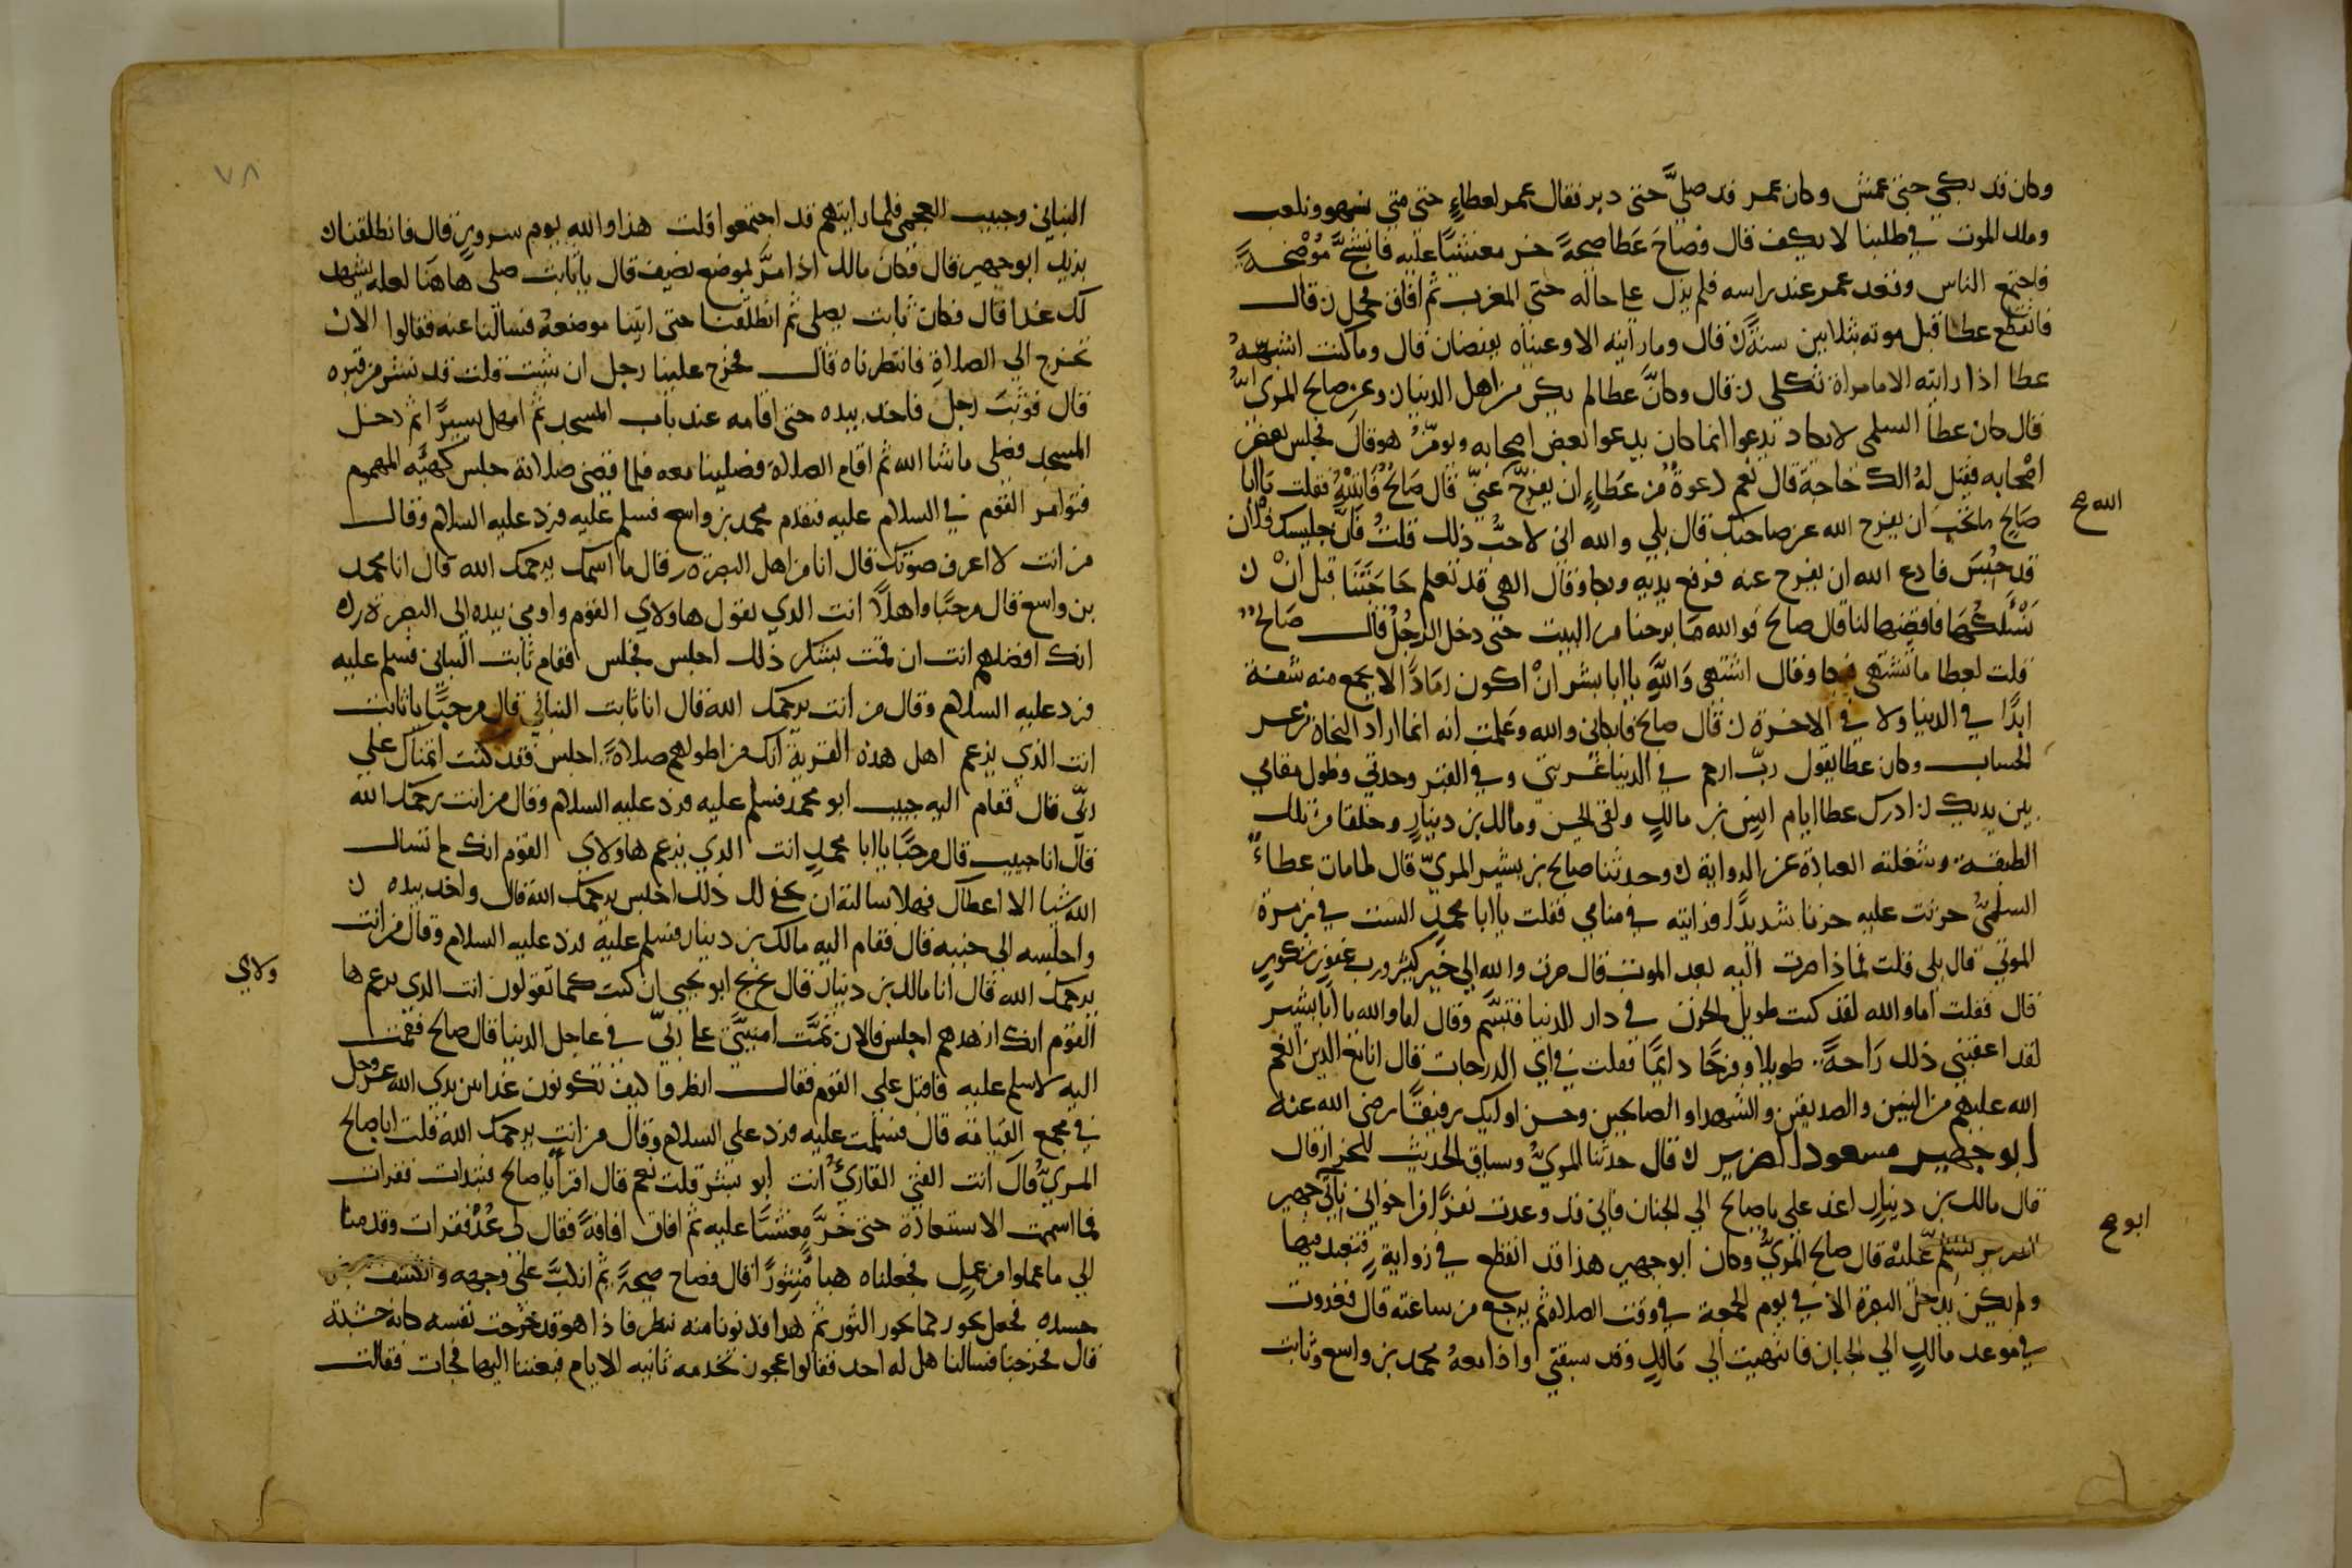 وكان قد بكى حتى عمش وكان عمر قد صلى حتى دبر فقال عمر لعطاء حتى متى نسهو ونلعب
وملك الموت في طلبنا لا يكف قال فصاح عطا صيحة خر مغشيا عليه فانشج موضحة
فاجتمع الناس وقعد عمر عند راسه فلم يزل على حاله حتى المغرب ثم افاق فحمل ن قال
فانقطع عطا قبل موته بثلاثين سنة ن قال وما رايته الا وعيناه يفيضان قال وما كنت اشبه
عطا اذا رايته الا امراة ثكلى ن قال وكان عطا لم يكن من اهل الدنيا ن وعن صالح المري
قال كان عطا السلمى لا يكاد يدعوا انما كان يدعوا بعض اصحابه ويومن هو قال فحبس بعض
اصحابه فقيل له الك حاجة قال نعم دعوة من عطاء ان يفرج عني قال صالح فاتيته فقلت يا ابا
الله صح
صالح ما تحب ان يفرج الله عن صاحبك قال بلى والله انى لاحب ذلك قلت فان جليسك فلان
قد حبس فادع الله ان يفرج عنه فرفع يديه وبكا وقال الهي قد تعلم حاجتنا قبل ان ن
نسئلكها فاقضها لنا قال صالح فوالله ما برحنا من البيت حتى دخل الرجل قال صالح
قلت لعطا ما تشتهى فبكا وقال اشتهى والله يا ابا بشر ان اكون رمادا لا يجمع منه سفة
ابدا في الدنيا ولا في الاخرة ن قال صالح فابكانى والله وعلمت انه انما اراد النجاة من عسر
الحساب وكان عطا يقول رب ارحم في الدنيا غربتي وفي القبر وحدتي وطول مقامي
بين يديك ن ادرك عطا ايام انس بن مالك ولقى الحسن ومالك بن دينار وخلقا من تلك
الطبقة وشغلته العبادة عن الرواية ن وحدثنا صالح بن بشير المري قال لما مات عطاء
السلمى حزنت عليه حزنا شديدا فرايته في منامي فقلت يا ابا محمد الست في زمرة
الموتى قال بلى قلت فماذا صرت اليه بعد الموت قال صرت والله الى خير كثير ورب غفور شكور
قال فقلت اما والله لقد كنت طويل الحزن في دار الدنيا فتبسم وقال اما والله يا ابا بشر
لقد اعقبني ذلك راحة طويلا وفرحا دائما فقلت في اي الدرجات قال انا مع الذين انعم
الله عليهم من النبين والصديقين والشهدا والصالحين وحسن اوليك رفيقا رضى الله عنه
ابو جهير مسعود الضرير ن قال حدثنا المري وسياق الحديث للخراز قال
قال مالك بن دينار اغد على يا صالح الى الجبان فاني قد وعدت نفرا من اخوانى بابي جهير
ابو صح
الضرير لنسلم عليه قال صالح المري وكان ابو جهير هذا قد انقطع في زواية فتعبد فيها
ولم يكن يدخل البصرة الا في يوم الجمعة في وقت الصلاه ثم يرجع من ساعته قال فغدوت
في موعد مالك الى الجبان فانتهيت الى مالك وقد سبقني واذا معه محمد بن واسع وثابت
٧٨
البناني وحبيب العجمى فلما رايتهم قد اجتمعوا قلت هذا والله يوم سرور قال فانطلقنا ن
نريد ابو جهير قال فكان مالك اذا مر بموضع نضيف قال يا ثابت صلى هاهنا لعله يشهد
لك غدا قال فكان ثابت يصلى ثم انطلقنا حتى اتينا موضعه فسالنا عنه فقالوا الان
تخرج الى الصلاة فانتظرناه قال فخرج علينا رجل ان شيت قلت قد نشر من قبره
قال فوثب رجل فاخذ بيده حتى اقامه عند باب المسجد ثم امهل يسيرا ثم دخل
المسجد فصلى ما شا الله ثم اقام الصلاة فصلينا معه فلما قضى صلاته جلس كهيئه المهموم
فتوامر القوم في السلام عليه فتقدم محمد بن واسع فسلم عليه فرد عليه السلام وقال
من انت لا اعرف صوتك قال انا من اهل البصرة ن قال ما اسمك يرحمك الله قال انا محمد
بن واسع قال مرحبا واهلا انت الذي يقول هاولاي القوم واومى بيده الى البصرة ن
انك افضلهم انت ان قمت بشكر ذلك اجلس فجلس فقام ثابت البنانى فسلم عليه
فرد عليه السلام وقال من انت يرحمك الله قال انا ثابت البناني قال مرحبا يا ثابت
انت الذي يزعم اهل هذه القرية انك من اطولهم صلاة اجلس فقد كنت اتمناك على
ربي قال فقام اليه حبيب ابو محمد فسلم عليه فرد عليه السلام وقال من انت يرحمك الله
قال انا حبيب قال مرحبا يا ابا محمد انت الذي يزعم هاولاي القوم انك لم تسال
الله شيا الا اعطاك فهلا سالته ان يخفى لك ذلك اجلس يرحمك الله قال واخذ بيده ن
واجلسه الى جنبه قال فقام اليه مالك بن دينار فسلم عليه فرد عليه السلام وقال من انت
يرحمك الله قال انا مالك بن دينار قال بخ بخ ابو يحيى ان كنت كما تقولون انت الذى يزعم ها
ولاي
القوم انك ازهدهم اجلس فالان تمت امنيتى على ربي في عاجل الدنيا قال صالح فقمت
اليه لاسلم عليه فاقبل على القوم فقال انظروا كيف تكونون غدا بين يدي الله عز وجل
في مجمع القيامة قال فسلمت عليه فرد على السلام وقال من انت يرحمك الله فقلت انا صالح
المري قال انت الفتى القارئ انت ابو بشر قلت نعم قال اقرا يا صالح فابتدات فقرات
فما استتمت الاستعاذة حتى خر مغشيا عليه ثم افاق افاقة فقال لى عد فقرات وقدمنا
الى ما عملوا من عمل فجعلناه هبا منثورا قال فصاح صيحة ثم انكب على وجهه وانكشف
جسده فجعل يخور كما يخور الثور ثم هدا فدنونا منه ننظر فاذا هو قد خرجت نفسه كانه خشبة
قال فخرجنا فسالنا هل له احد فقالوا عجوز تخدمه تاتيه الايام فبعثنا اليها فجات فقالت